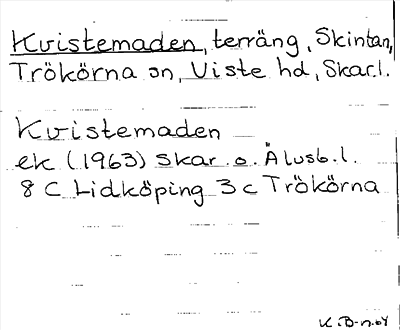 Kvistemaden, terräng, Skintan,
Trökörna sn, Viste hd, Skar.l.
Kvistemaden
ek (1963) Skar. o. Älvsb.l.
8 C Lidköping 3 c Trökörna
K.B-n.64